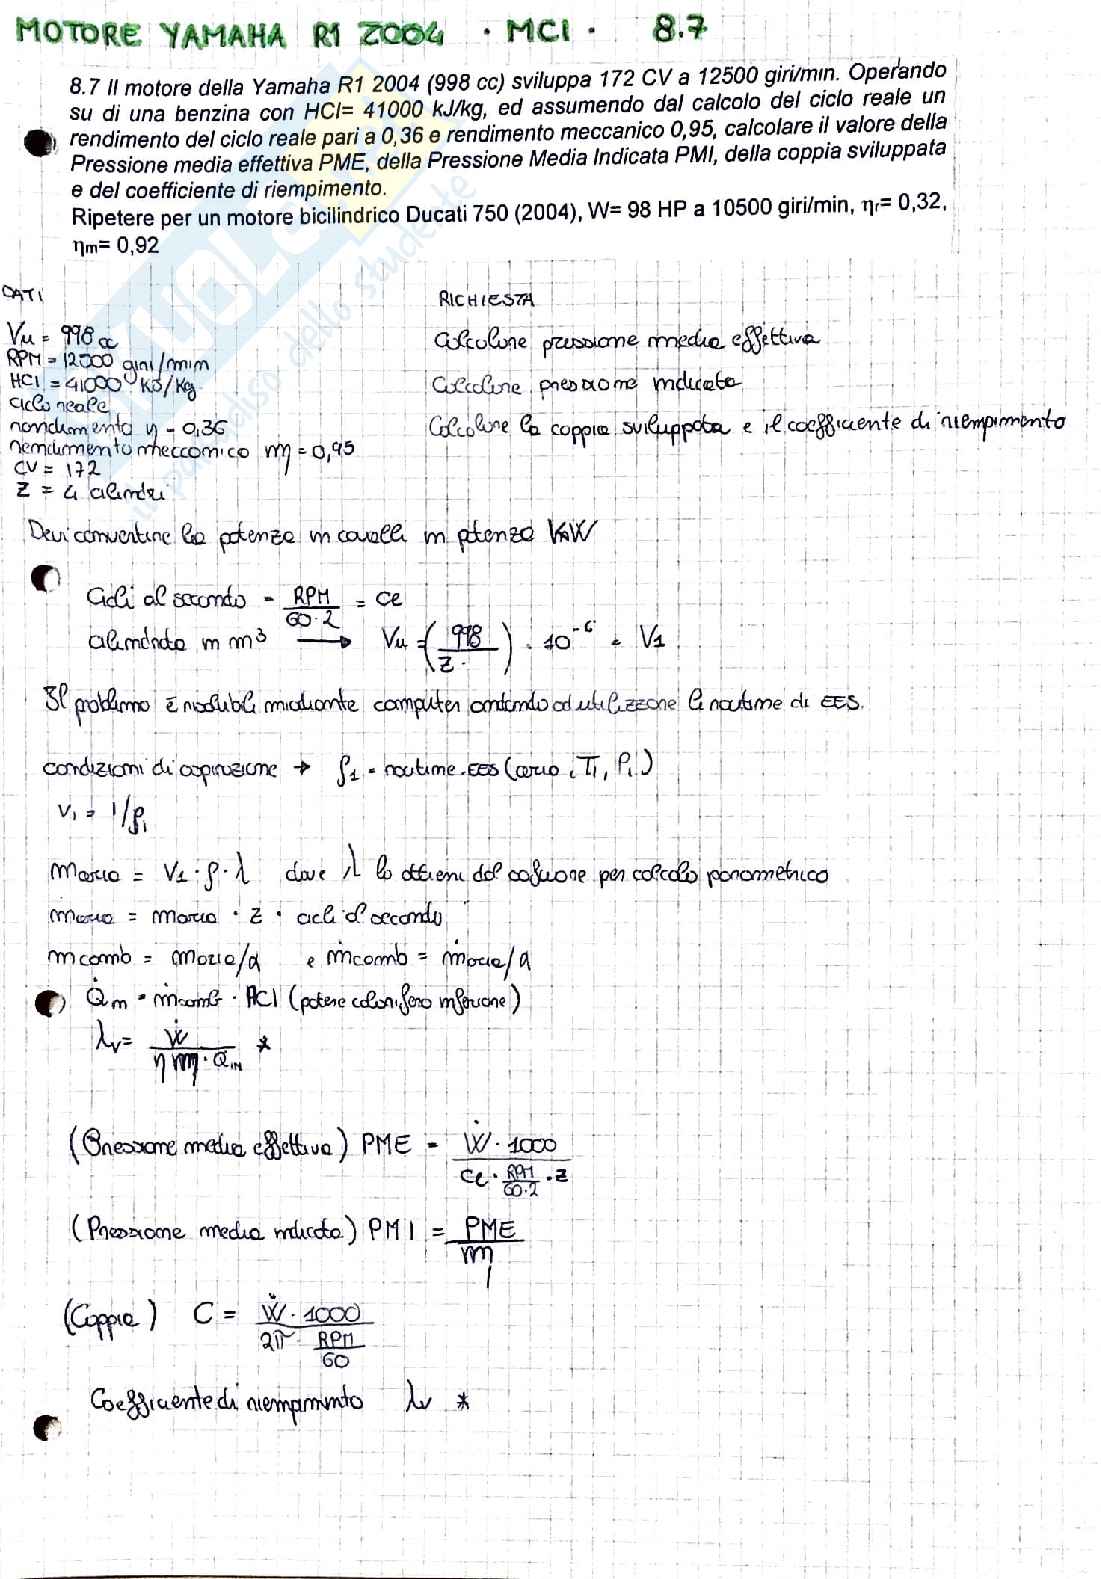 MOTORE YAMAHA R1 2004 · MCI · 8.7
8.7 Il motore della Yamaha R1 2004 (998 cc) sviluppa 172 CV a 12500 giri/min. Operando
su di una benzina con HCI= 41000 kJ/kg, ed assumendo dal calcolo del ciclo reale un
rendimento del ciclo reale pari a 0,36 e rendimento meccanico 0,95, calcolare il valore della
Pressione media effettiva PME, della Pressione Media Indicata PMI, della coppia sviluppata
e del coefficiente di riempimento.
Ripetere per un motore bicilindrico Ducati 750 (2004), W= 98 HP a 10500 giri/min, ηr= 0,32,
ηm= 0,92
DATI
RICHIESTA
Vu = 998 cc
Calcolare pressione media effettiva
RPM = 12500 giri/min
HCI = 41000 KJ/Kg
Calcolare pressione indicata
ciclo reale
rendimento η = 0,36
Calcolare la coppia sviluppata e il coefficiente di riempimento
rendimento meccanico η = 0,95
CV = 172
Z = 4 cilindri
Devi convertire la potenza in cavalli in potenza KW
Cicli al secondo = RPM / 60·2 = cc
cilindrata in m³ → Vu = (998 / Z) · 10⁻⁶ = V1
Il problema è risolubile mediante computer andando ad utilizzare le routine di EES.
condizioni di aspirazione → ρ1 = routine EES (aria, T1, P1)
v1 = 1/ρ1
maria = V1 · ρ · λ dove λ lo ottieni dal calcolo parametrico
ṁaria = maria · Z · cicli al secondo
mcomb = maria/α e ṁcomb = ṁaria/α
Q̇in = ṁcomb · HCI (potere calorifero inferiore)
λv = Ẇ / η η · Qin *
(Pressione media effettiva) PME = Ẇ · 1000 / cc · RPM/60·2 · Z
(Pressione media indicata) PMI = PME / η
(Coppia) C = Ẇ · 1000 / 2π RPM/60
Coefficiente di riempimento λv *